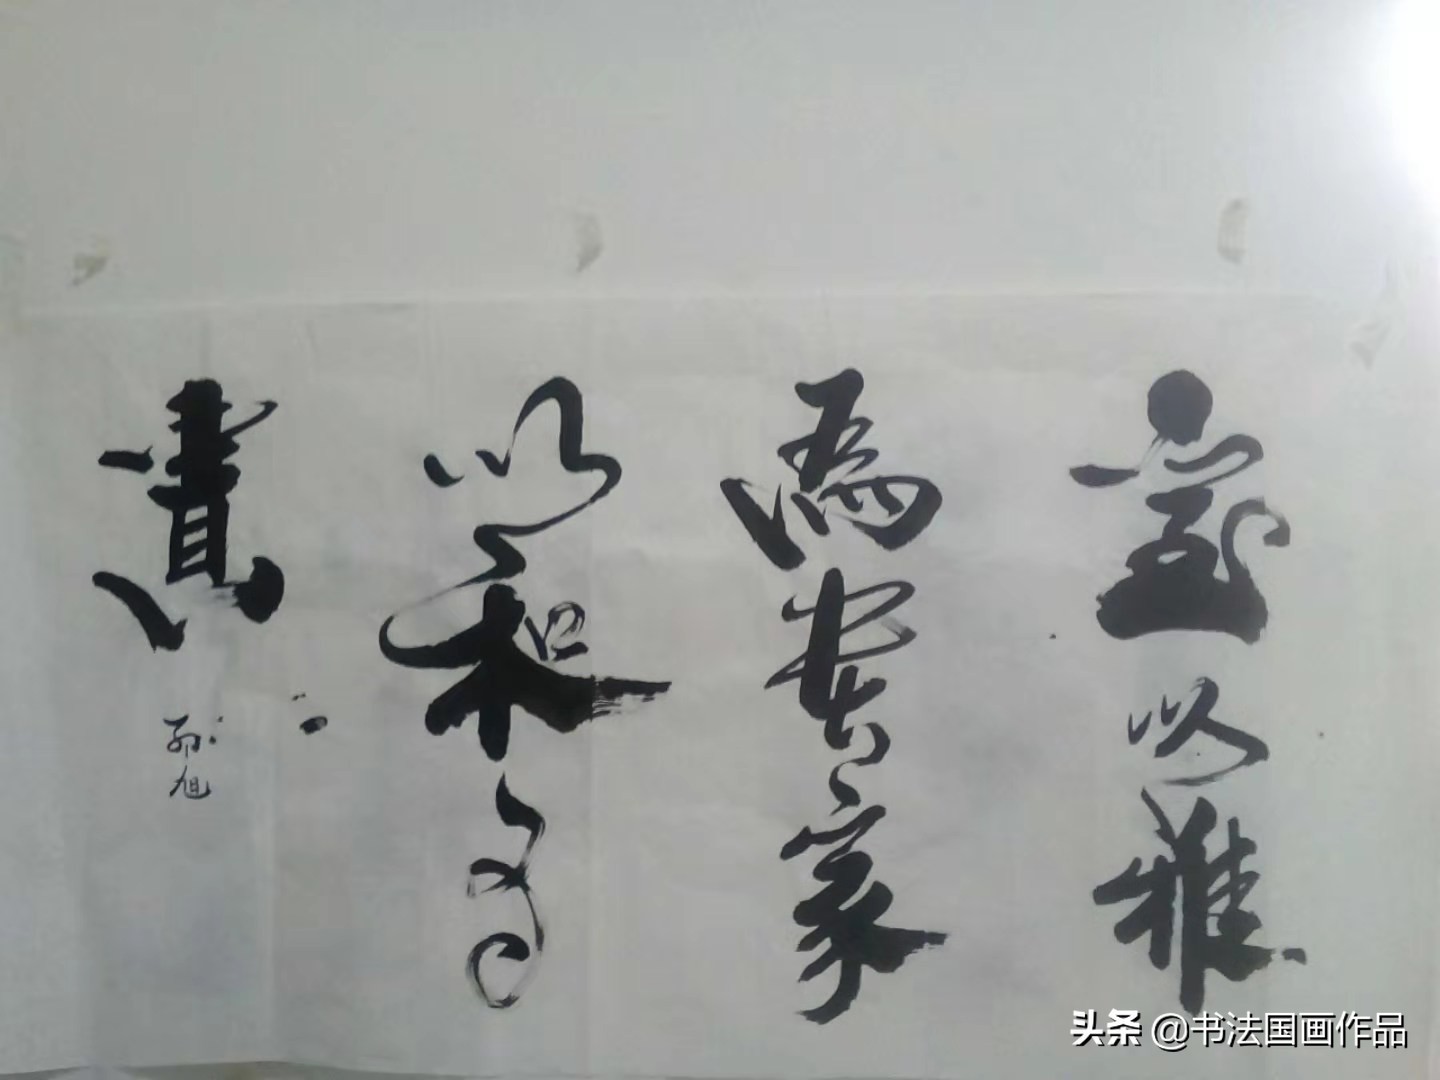 室以雅
為貴家
以和為
貴
孙旭
头条 @书法国画作品